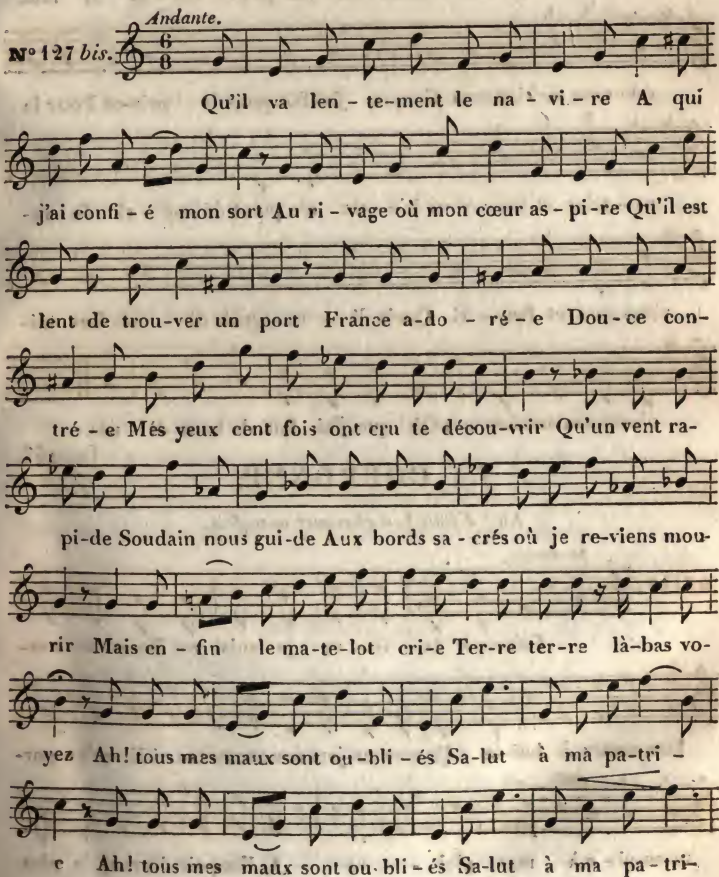 Andante.
N° 127 bis. 6 8
Qu'il va len - te-ment le na - vi - re A qui
- j'ai confi - é mon sort Au ri - vage où mon cœur as - pi-re Qu'il est
lent de trou-ver un port France a-do - ré - e Dou-ce con-
tré - e Més yeux cent fois ont cru te décou-vrir Qu'un vent ra-
pi-de Soudain nous gui-de Aux bords sa - crés où je re-viens mou-
rir Mais en - fin le ma-te-lot cri-e Ter-re ter-re là-bas vo-
- yez Ah! tous mes maux sont ou-bli - és Sa-lut à mà pa-tri -
e Ah! tous mes maux sont ou-bli - és Sa-lut à ma pa-tri-